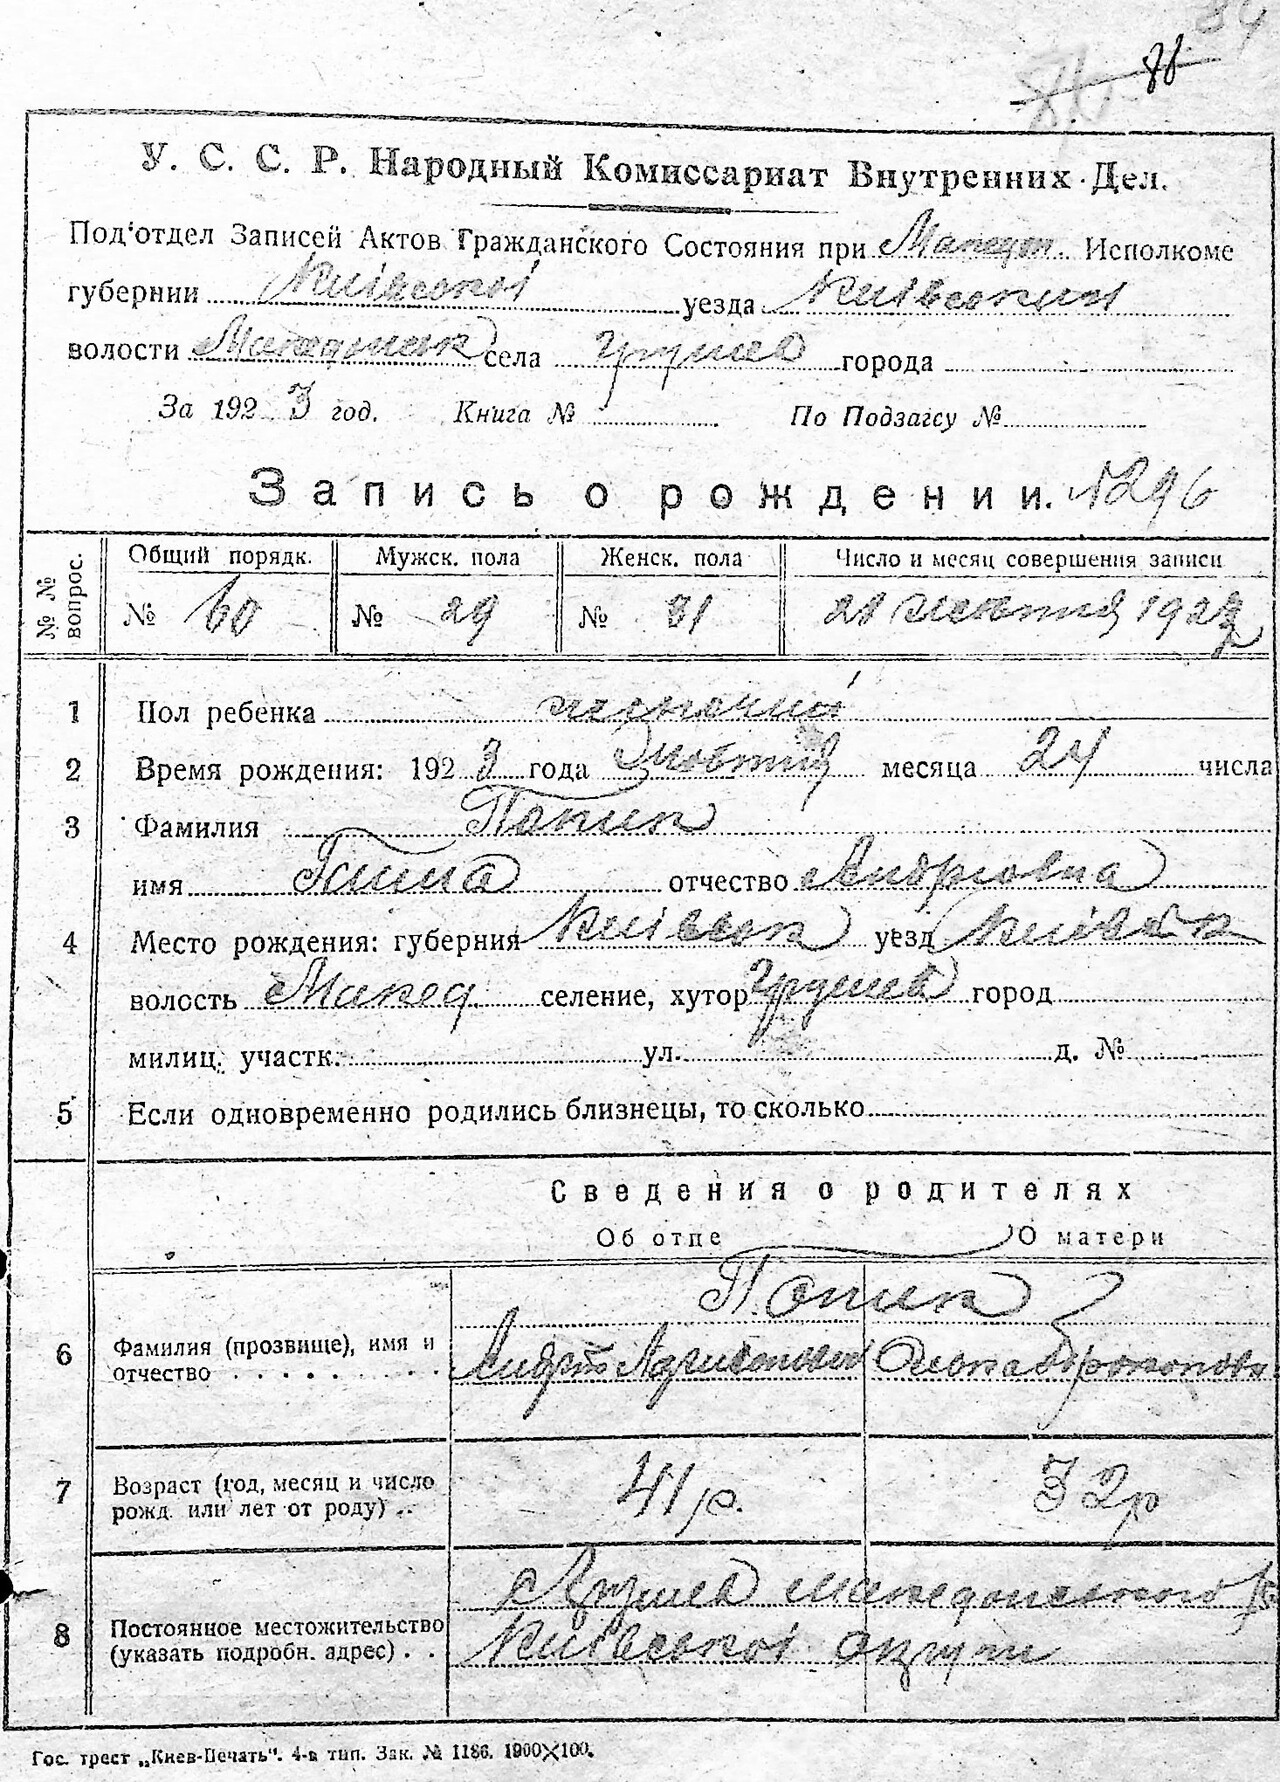 У. С. С. Р. Народный Комиссариат Внутренних Дел.
Под'отдел Записей Актов Гражданского Состояния при Македон. Исполкоме
губернии Київської уезда Київський
волости Македонськ села Грушев города
За 1923 год. Книга № По Подзагсу №
Запись о рождении. №296
№ № вопрос. Общий порядк. Мужск. пола Женск. пола Число и месяц совершения записи
№ 60 № 29 № 31 28 Жовтня 1923
1 Пол ребенка жіночий
2 Время рождения: 1923 года Жовтня месяца 24 числа
3 Фамилия Попик
имя Ганна отчество Андріовна
4 Место рождения: губерния Київськ уезд Київськ
волость Макед. селение, хутор Грушев город
милиц. участк. ул. д. №
5 Если одновременно родились близнецы, то сколько
Сведения о родителях
Об отце О матери
Попик
6 Фамилия (прозвище), имя и
отчество Андрій
7 Возраст (год, месяц и число
рожд. или лет от роду) 41 р. 32 р
с Грушев Македонського
8 Постоянное местожительство
(указать подробн. адрес) Київської округи
Гос. трест „Киев-Печать". 4-я тип. Зак. № 1186. 1900×100.